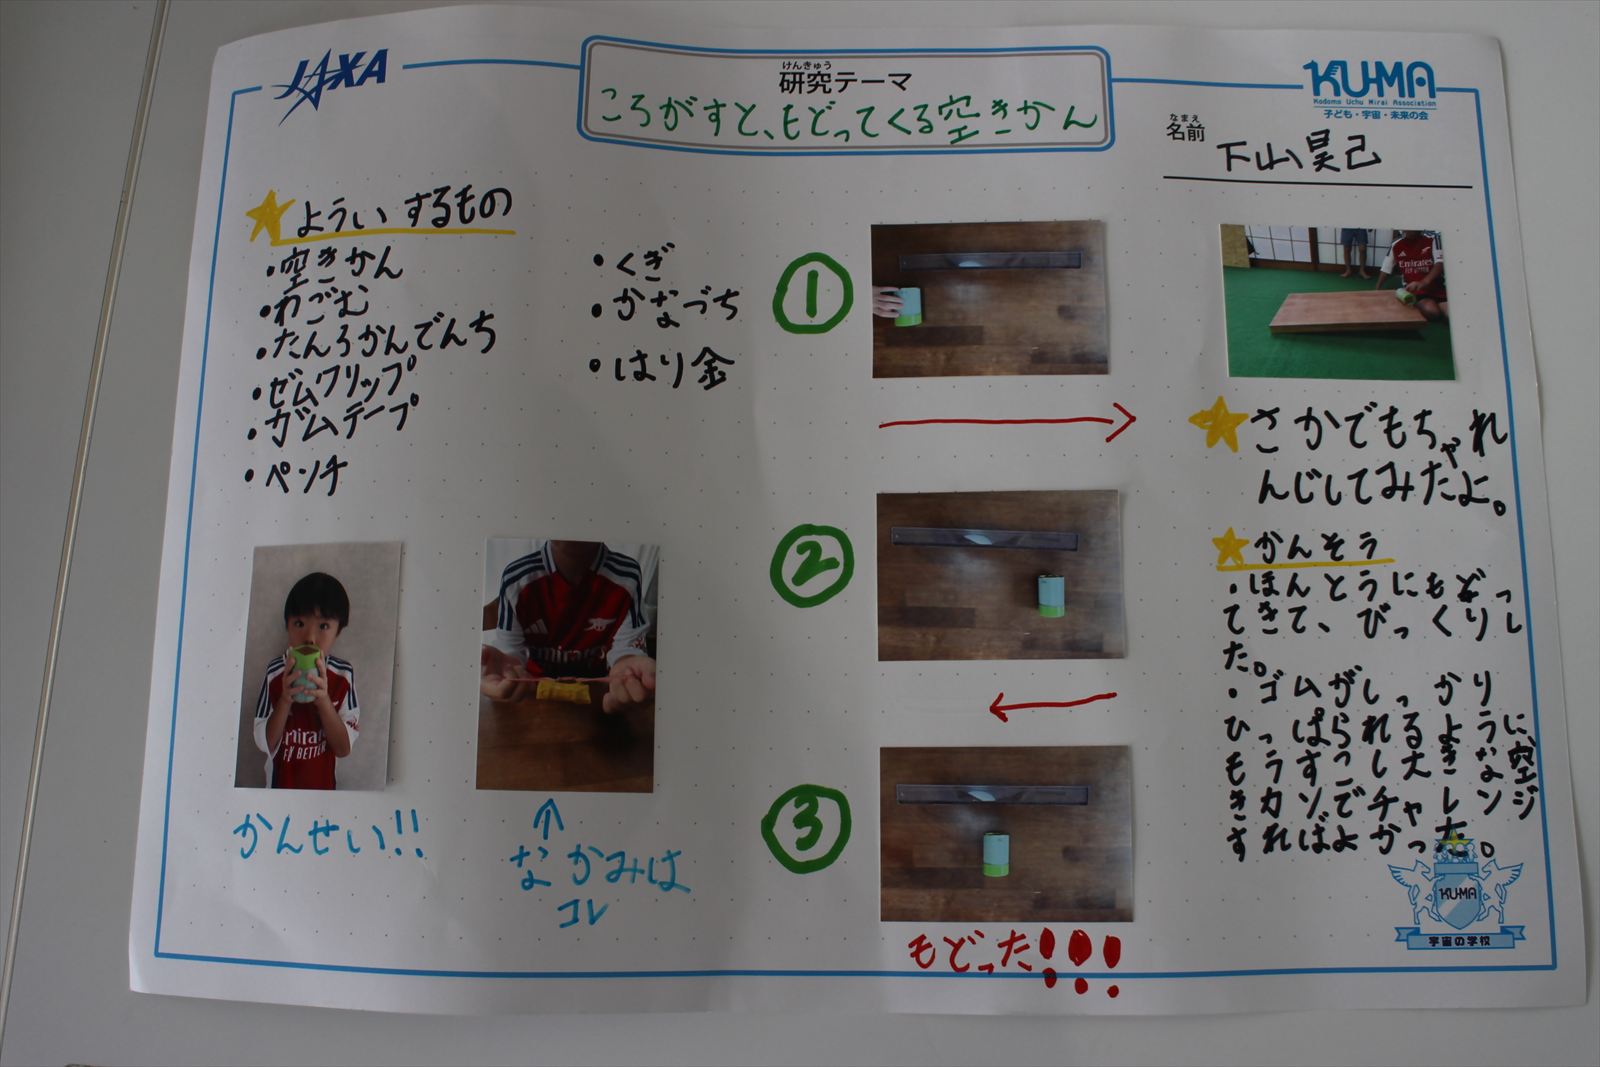 JAXA
けんきゅう
研究テーマ
ころがすと、もどってくる空きかん
KU-MA
Kodomo Uchu Mirai Association
子ども・宇宙・未来の会
なまえ
名前
下山昊己
よういするもの
・空きかん
・わごむ
・たんろかんでんち
・ゼムクリップ
・ガムテープ
・ペンチ
・くぎ
・かなづち
・はり金
かんせい!!
↑
なかみは
コレ
①
②
③
もどった!!!
さかでもちゃれ
んじしてみたよ。
かんそう
・ほんとうにもどっ
てきて、びっくりし
た。
・ゴムがしっかり
ひっぱられるように、
もうすこし大きな空
きカンでチャレンジ
すればよかった。
KU-MA
宇宙の学校
Emirates
FLY BETTER
mirates
FLY BETTER